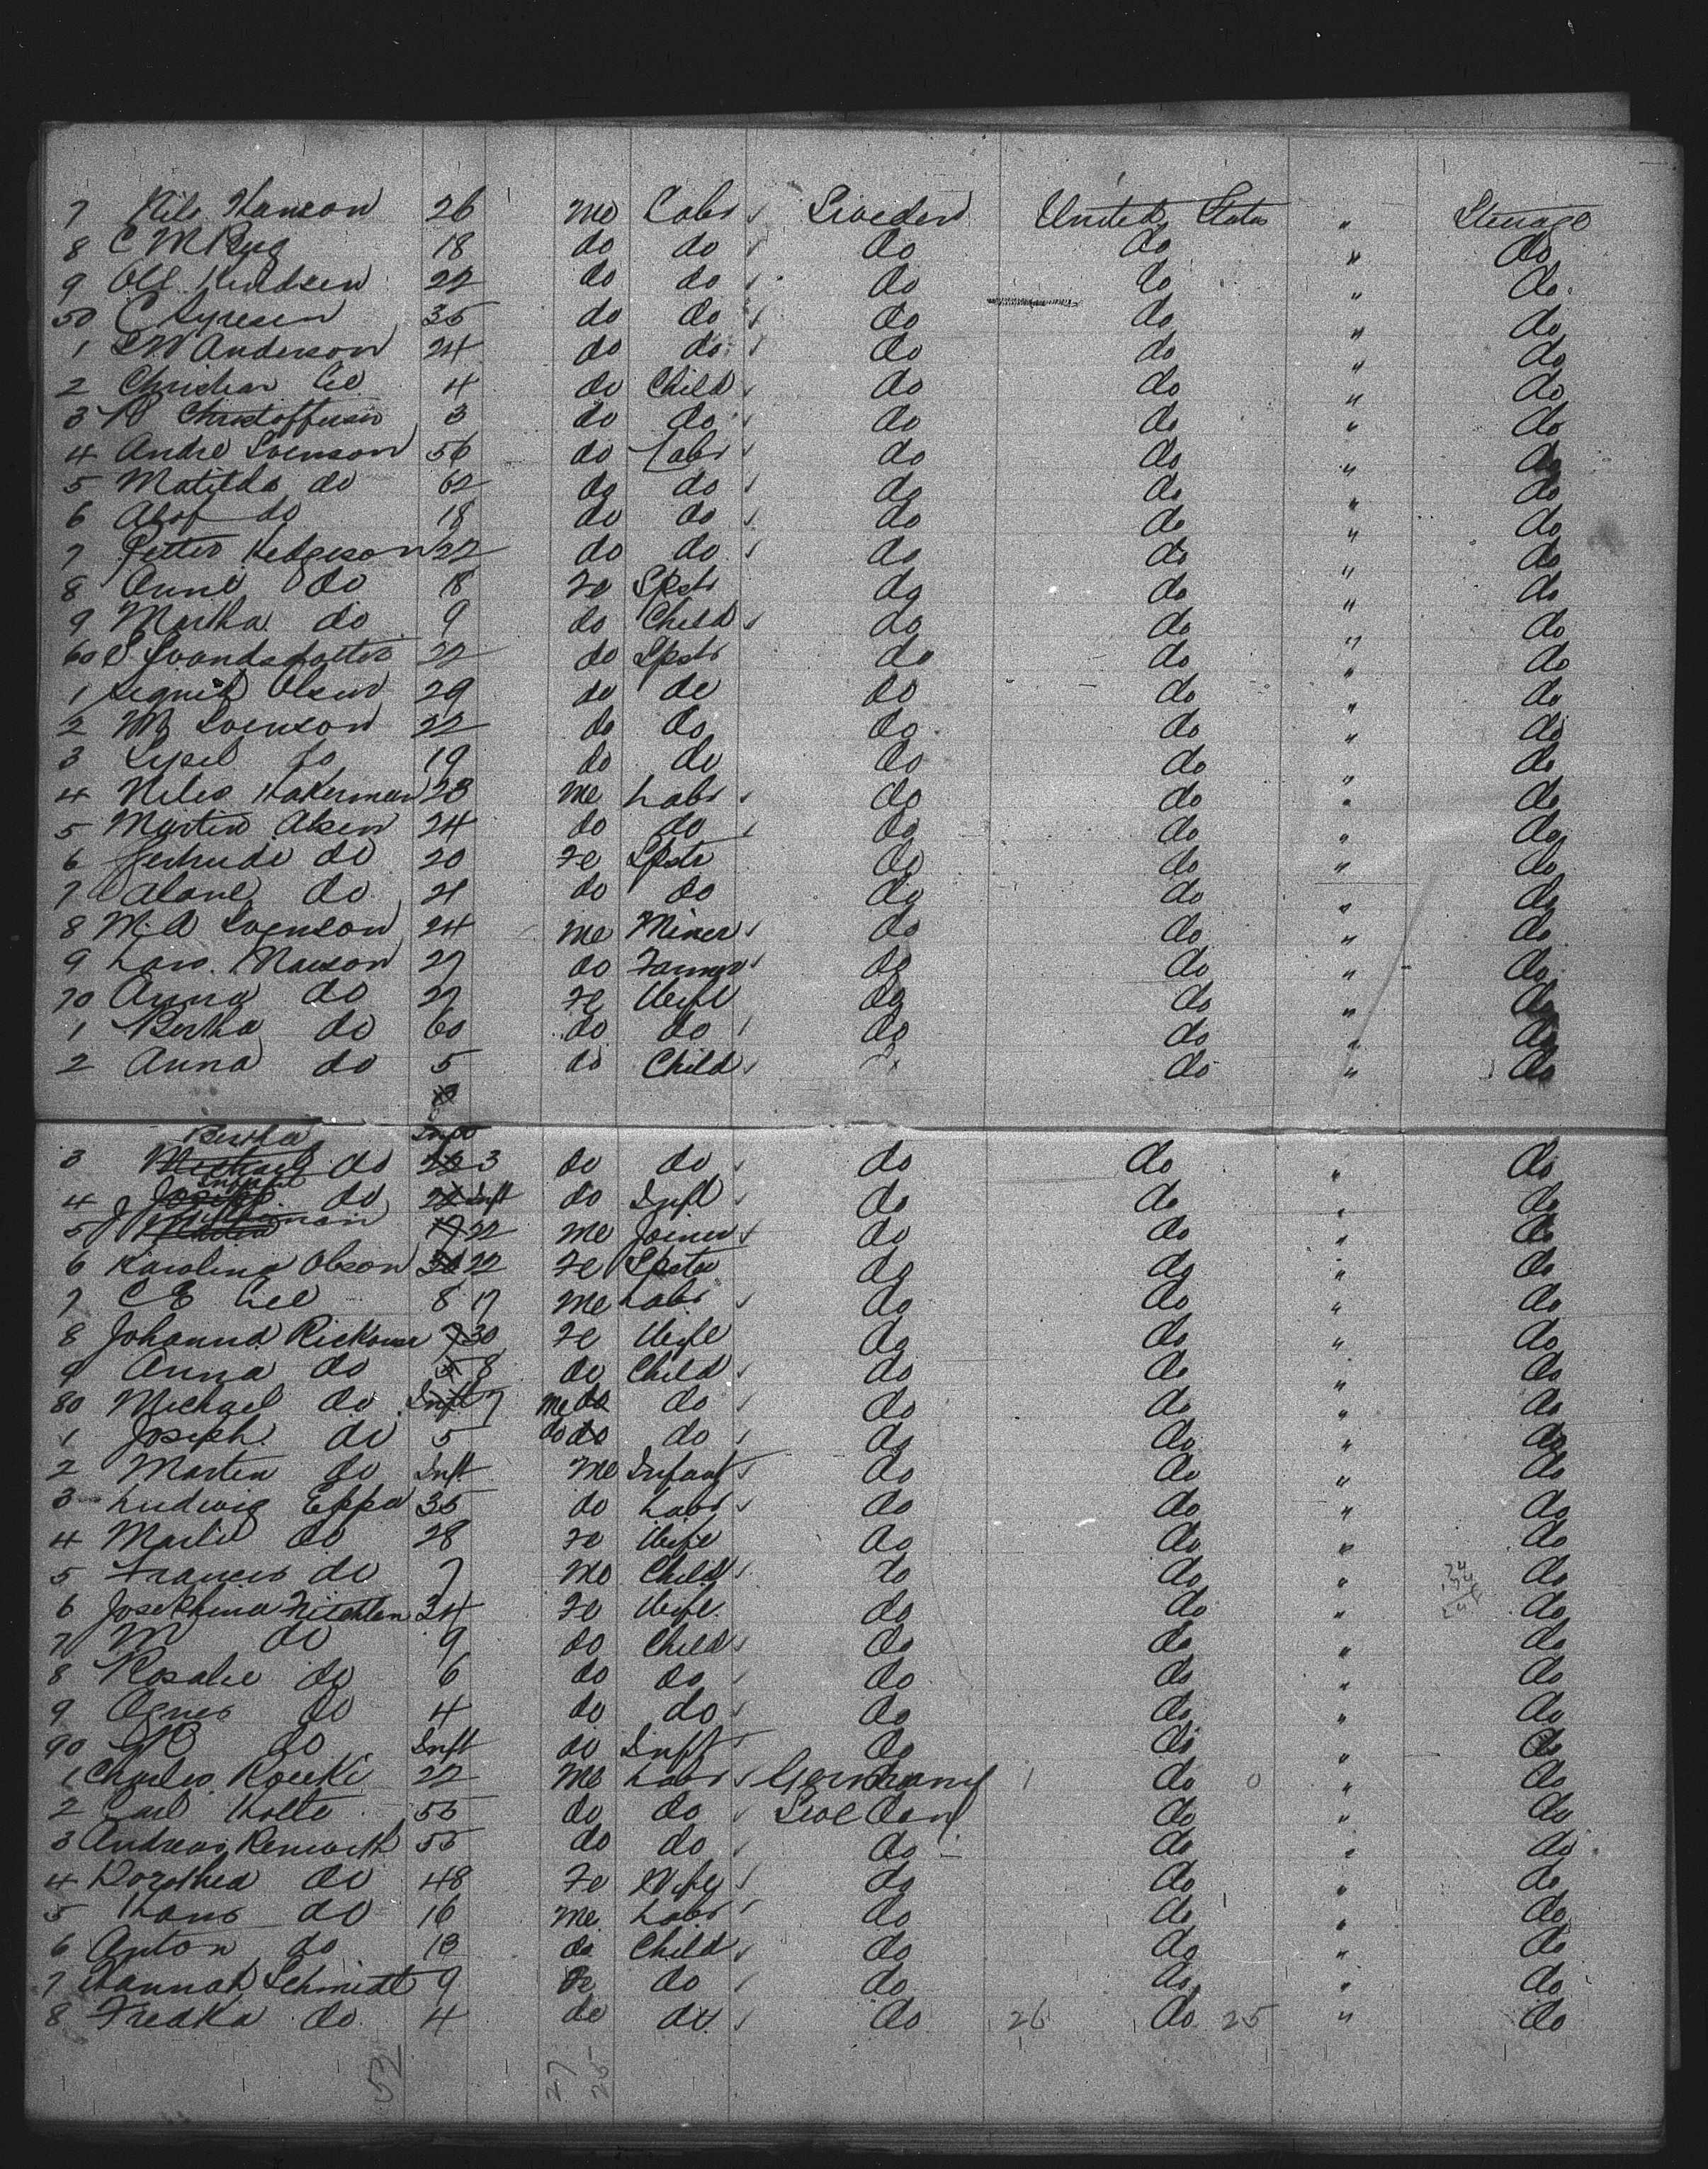 7 Nils Hanson 26 Me Labr Sweden United States " Steerage
8 C M Berg 18 do do do do " do
9 Ole Knudsen 22 do do do do " do
50 C 35 do do do do " do
1 S W Anderson 24 do do do do " do
2 Christian Lee 4 do Child do do " do
3 Christoffersen 3 do do do do " do
4 Andre Svenson 56 do Labr do do " do
5 Matilda do 62 do do do do " do
6 do 18 do do do do " do
7 Petter 22 do do do do " do
8 Anne do 18 Fe Spstr do do " do
9 Martha do 9 do Child do do " do
60 S 22 do Spstr do do " do
1 Olsen 29 do do do do " do
2 M Svenson 22 do do do do " do
3 do 19 do do do do " do
4 Niles 23 Me Labr do do " do
5 Martin Olsen 24 do do do do " do
6 Gertrude do 20 Fe Spstr do do " do
7 do 21 do do do do " do
8 M A Svenson 24 Me Miner do do " do
9 Lars Hanson 27 do Farmer do do " do
70 Anna do 27 Fe Wife do do " do
1 Bertha do 60 do do do do " do
2 Anna do 5 do Child do do " do
Bertha Inft
3 Michael do 3 do do do do " do
Infant
4 Joseph do Inft do Inft do do " do
5 J 22 Me Joiner do do " do
6 Karolina Olson 22 Fe Spstr do do " do
7 C E Lee 17 Me Labr do do " do
8 Johanna 30 Fe Wife do do " do
9 Anna do 8 do Child do do " do
80 Michael do Inft 7 Me do do do do " do
1 Joseph do 5 do do do do do " do
2 Martin do Inft Me Infant do do " do
3 Ludwig Eppa 35 do Labr do do " do
4 Marie do 28 Fe Wife do do " do
5 Francis do 7 Me Child do do " do
6 Josephina 34 Fe Wife do do " do
7 M do 9 do Child do do " do
8 Rosalie do 6 do do do do " do
9 Agnes do 4 do do do do " do
90 do Inft do Inft do do " do
1 Charles 22 Me Labr Germany 1 do 0 " do
2 Carl 55 do do Sweden do " do
3 Andreas 55 do do do do " do
4 Dorothea do 48 Fe Wife do do " do
5 Hans do 16 Me Labr do do " do
6 Anton do 13 do Child do do " do
7 Hannah Schmidt 9 Fe do do do " do
8 Fredka do 4 do do do 26 do 25 " do
53 27 26